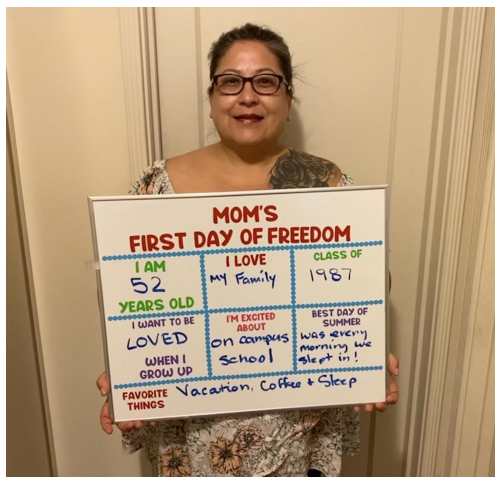 MOM'S
FIRST DAY OF FREEDOM
I AM
52
YEARS OLD
I LOVE
My Family
CLASS OF
1987
I WANT TO BE
LOVED
WHEN I
GROW UP
I'M EXCITED
ABOUT
on campus
school
BEST DAY OF
SUMMER
was every
morning we
slept in!
FAVORITE
THINGS
Vacation, Coffee + Sleep